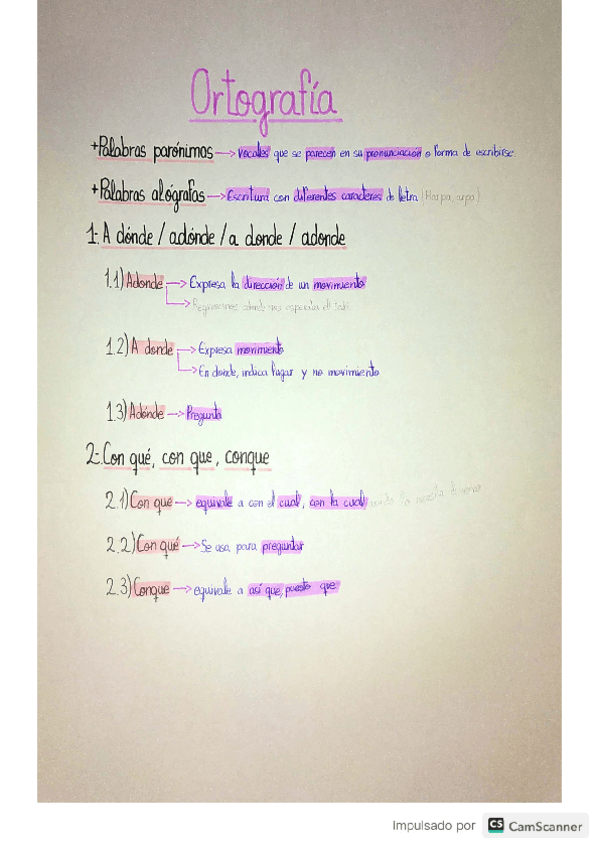 Ortografía
+Palabras parónimas → vocales que se parecen en su pronunciación o forma de escribirse.
+Palabras alógrafas → Escritura con diferentes caracteres de letra (Harpa, arpa)
1. A dónde / adónde / a donde / adonde
1.1) Adonde → Expresa la dirección de un movimiento
→
1.2) A donde → Expresa movimiento
→ En donde, indica lugar y no movimiento
1.3) Adónde → Pregunta
2. Con qué, con que, conque
2.1) Con que → equivale a con el cual, con la cual
2.2) Con qué → Se usa para preguntar
2.3) Conque → equivale a así que, puesto que
Impulsado por CS CamScanner